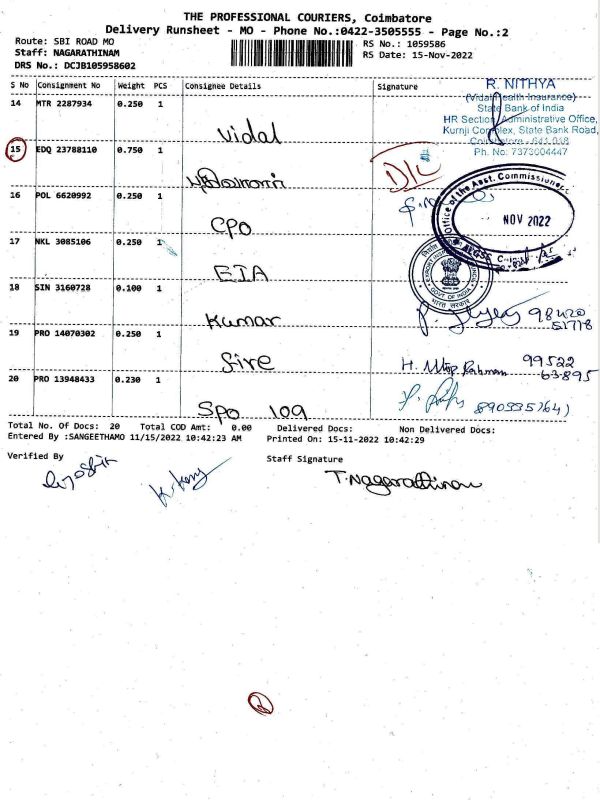 THE PROFESSIONAL COURIERS, Coimbatore
Delivery Runsheet - MO - Phone No.:0422-3505555 - Page No.:2
Route: SBI ROAD MO
RS No.: 1059586
Staff: NAGARATHINAM
RS Date: 15-Nov-2022
DRS No.: DCJB105958602
S No Consignment No Weight PCS Consignee Details Signature
R. NITHYA
(Vidal Health Insurance)
State Bank of India
HR Section, Administrative Office,
Kurnji Complex, State Bank Road,
Coimbatore - 641 018
Ph. No: 7373004447
14 MTR 2287934 0.250 1
Vidal
15 EDQ 23788110 0.750 1
D/C
16 POL 6620992 0.250 1
CPO
Office of the Asst. Commissioner
NOV 2022
17 NKL 3085106 0.250 1
EIA
GOVT OF INDIA
भारत सरकार
18 SIN 3160728 0.100 1
Kumar
98420
51778
19 PRO 14070302 0.250 1
fire
99522
63895
20 PRO 13948433 0.230 1
SPO 109
Total No. Of Docs: 20 Total COD Amt: 0.00 Delivered Docs: Non Delivered Docs:
Entered By :SANGEETHAMO 11/15/2022 10:42:23 AM Printed On: 15-11-2022 10:42:29
Verified By
Staff Signature
T. Nagarathinam
2